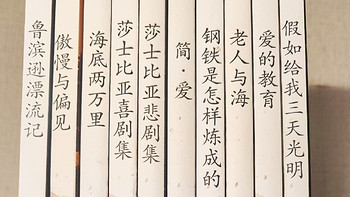 鲁滨逊漂流记
傲慢与偏见
海底两万里
莎士比亚喜剧集
莎士比亚悲剧集
简·爱
钢铁是怎样炼成的
老人与海
爱的教育
假如给我三天光明